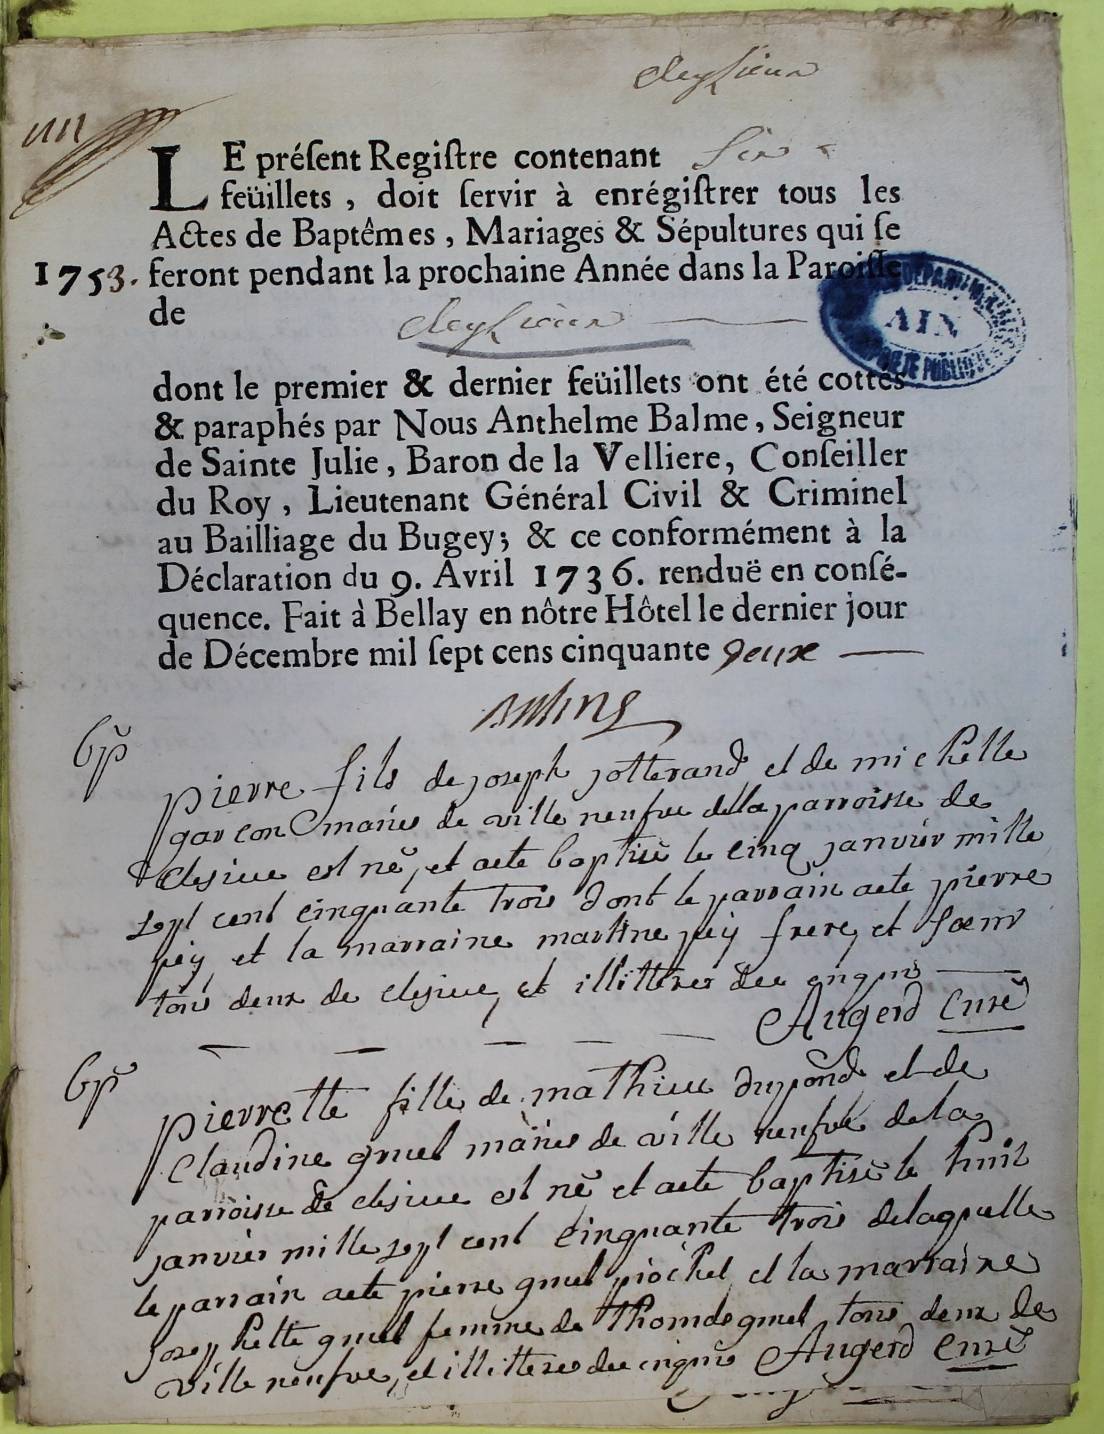 Cleyzieux
LE préſent Regiſtre contenant Six
feüillets, doit ſervir à enrégiſtrer tous les
Actes de Baptêmes, Mariages & Sépultures qui ſe
1753. feront pendant la prochaine Année dans la Paroiſſe
de Cleyzieux
AIN
dont le premier & dernier feüillets ont été cottés
& paraphés par Nous Anthelme Balme, Seigneur
de Sainte Julie, Baron de la Velliere, Conſeiller
du Roy, Lieutenant Général Civil & Criminel
au Bailliage du Bugey; & ce conformément à la
Déclaration du 9. Avril 1736. renduë en conſé-
quence. Fait à Bellay en nôtre Hôtel le dernier jour
de Décembre mil ſept cens cinquante deux
bp
pierre fils de joseph jotterand et de michelle
garcon mariés de ville neufve de la parroisse de
clesieu est né, et aete baptisé le cinq janvier mille
sept cent cinquante trois dont le parrain aete pierre
pey et la marraine martine pey frere, et sœur
tous deux de clesieu, et illitteres deu enquis
Augerd Curé
bp
pierrette fille de mathieu dupond et de
Claudine gruel mariés de ville neufve de la
parroisse de clesieu est né et aete baptisé le huit
janvier mille sept cent cinquante trois de laquelle
le parrain aete pierre gruel piochet et la marraine
josephette gruel femme de thomas gruel tous deux de
ville neufve, et illitteres deu enquis Augerd Curé